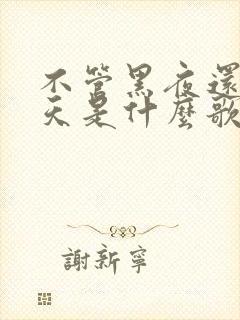 不管黑夜還
天是什麼歌
謝新寧